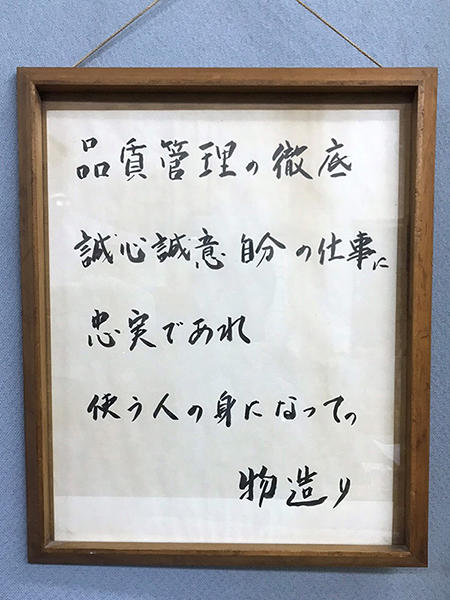 品質管理の徹底
誠心誠意自分の仕事に
忠実であれ
使う人の身になっての
物造り